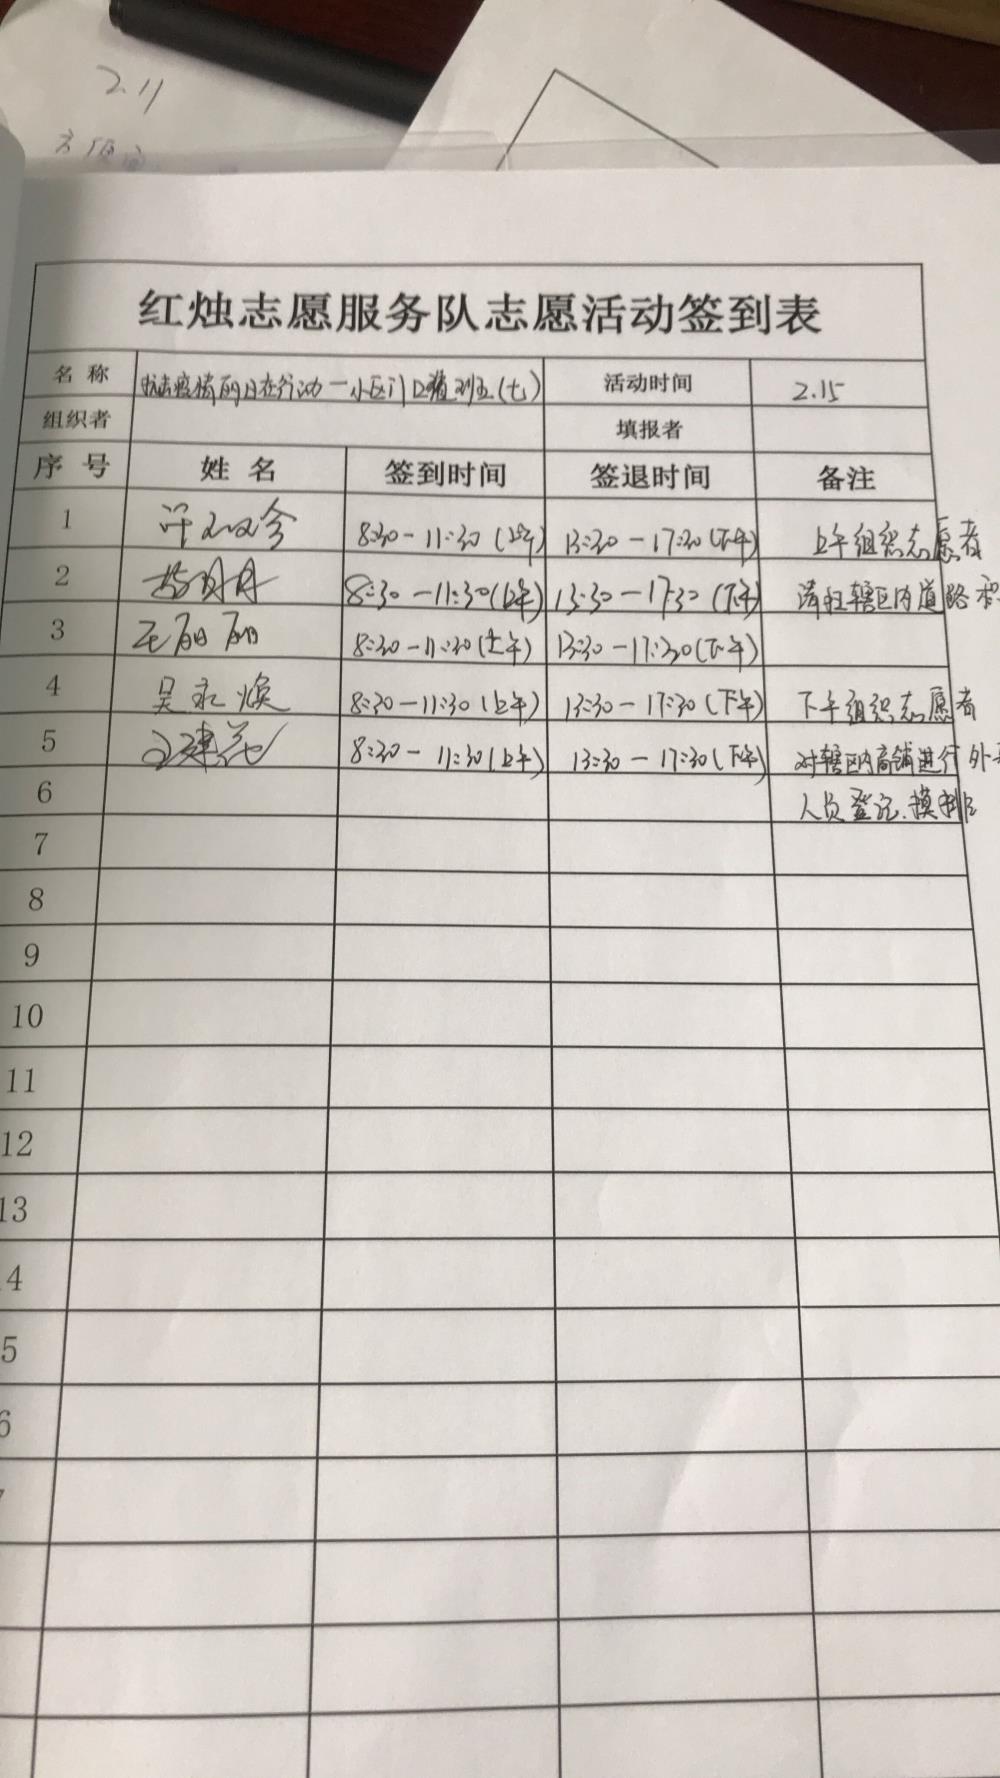 2.11
红烛志愿服务队志愿活动签到表
名 称 抗击疫情 在行动一小区门口值 (七) 活动时间 2.15
组织者 填报者
序 号 姓 名 签到时间 签退时间 备注
1 8:30-11:30(上午) 13:30-17:30(下午) 上午组织志愿者
2 8:30-11:30(上午) 13:30-17:30(下午) 清扫辖区内道路
3 王丽丽 8:30-11:30(上午) 13:30-17:30(下午)
4 吴永焕 8:30-11:30(上午) 13:30-17:30(下午) 下午组织志愿者
5 8:30-11:30(上午) 13:30-17:30(下午) 对辖区内商铺进行外
6 人员登记、摸排
7
8
9
10
11
12
13
4
5
6